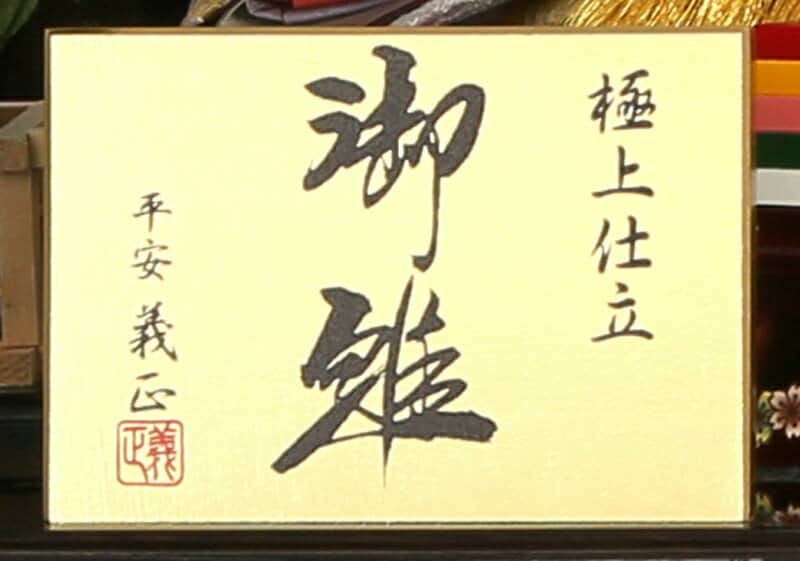 極上仕立
御雛
平安義正
義正